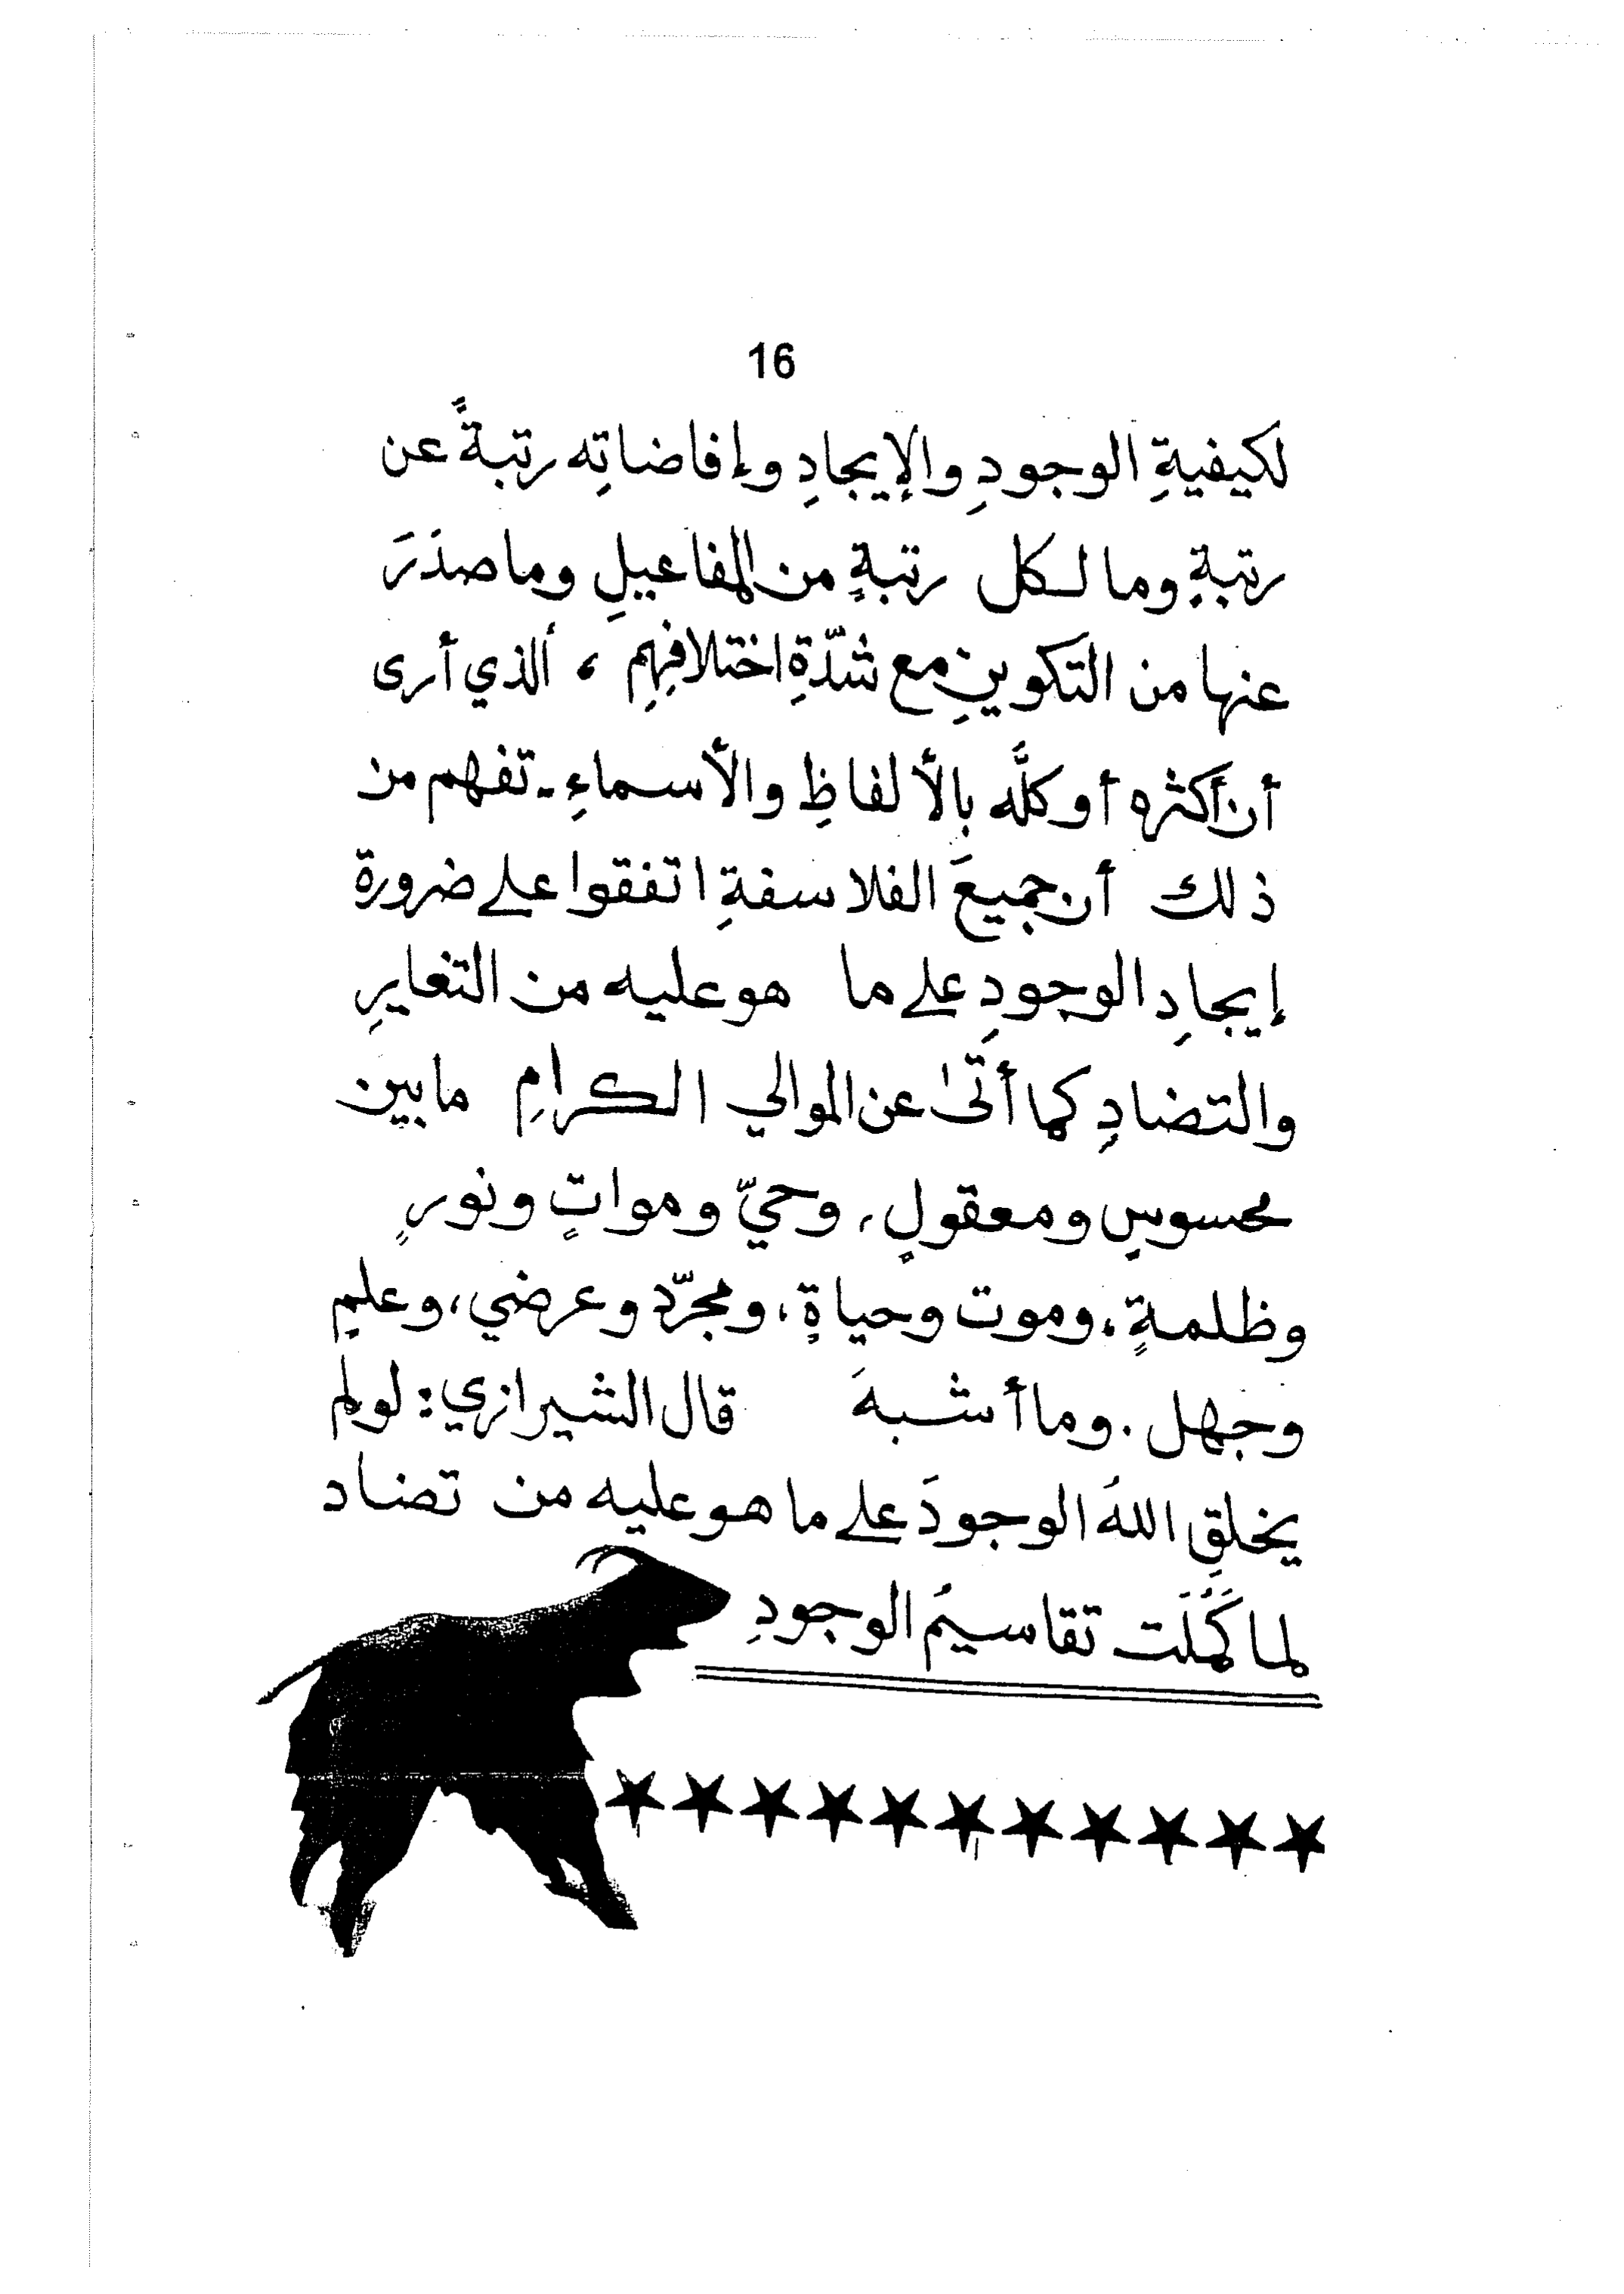 16
لكيفيةِ الوجودِ والإيجادِ وإفاضاتِه رتبةً عن
رتبةٍ وما لكل رتبةٍ من المفاعيلِ وما صدَرَ
عنها من التكوينِ مع شدّةِ اختلافِهِم ، ألذي أرى
أن أكثره أو كلَّه بالألفاظِ والأسماءِ - تفهم من
ذلك أن جميعَ الفلاسفةِ اتفقوا على ضرورة
إيجادِ الوجودِ على ما هو عليه من التغايرِ
والتضادِ كما أتى عن الموالي الكرامِ ما بين
محسوسٍ ومعقولٍ، وحيّ ومواتٍ ونورٍ
وظلمةٍ، وموت وحياةٍ، ومجرّد وعرضي، وعلمٍ
وجهل . وما أشبهَ قال الشيرازي : لو لم
يخلقِ اللهُ الوجودَ على ما هو عليه من تضاد
لما كَمُلَت تقاسيمُ الوجودِ